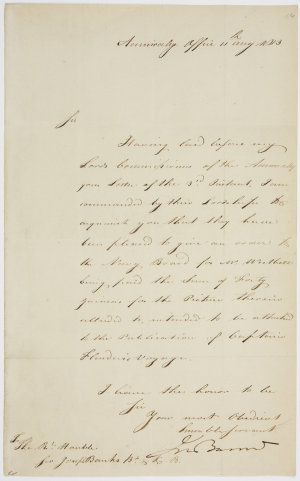 Admiralty Office 11th Aug 1813
Sir
Having laid before my
Lords Commissioners of the Admiralty
your Letter of the 3rd Instant, I am
commanded by their Lordships to
acquaint you that they have
been pleased to give an order to
the Navy Board for Mr. Westall
being paid the Sum of Forty
guineas for the Picture therein
alluded to, intended to be attached
to the Publication of Captain
Flinders's Voyage.
I have the honor to be
Sir
Your most Obedient
humble Servant
Jn Barrow
The Rt. Honble.
Sir Josph Banks Bt. K. B.